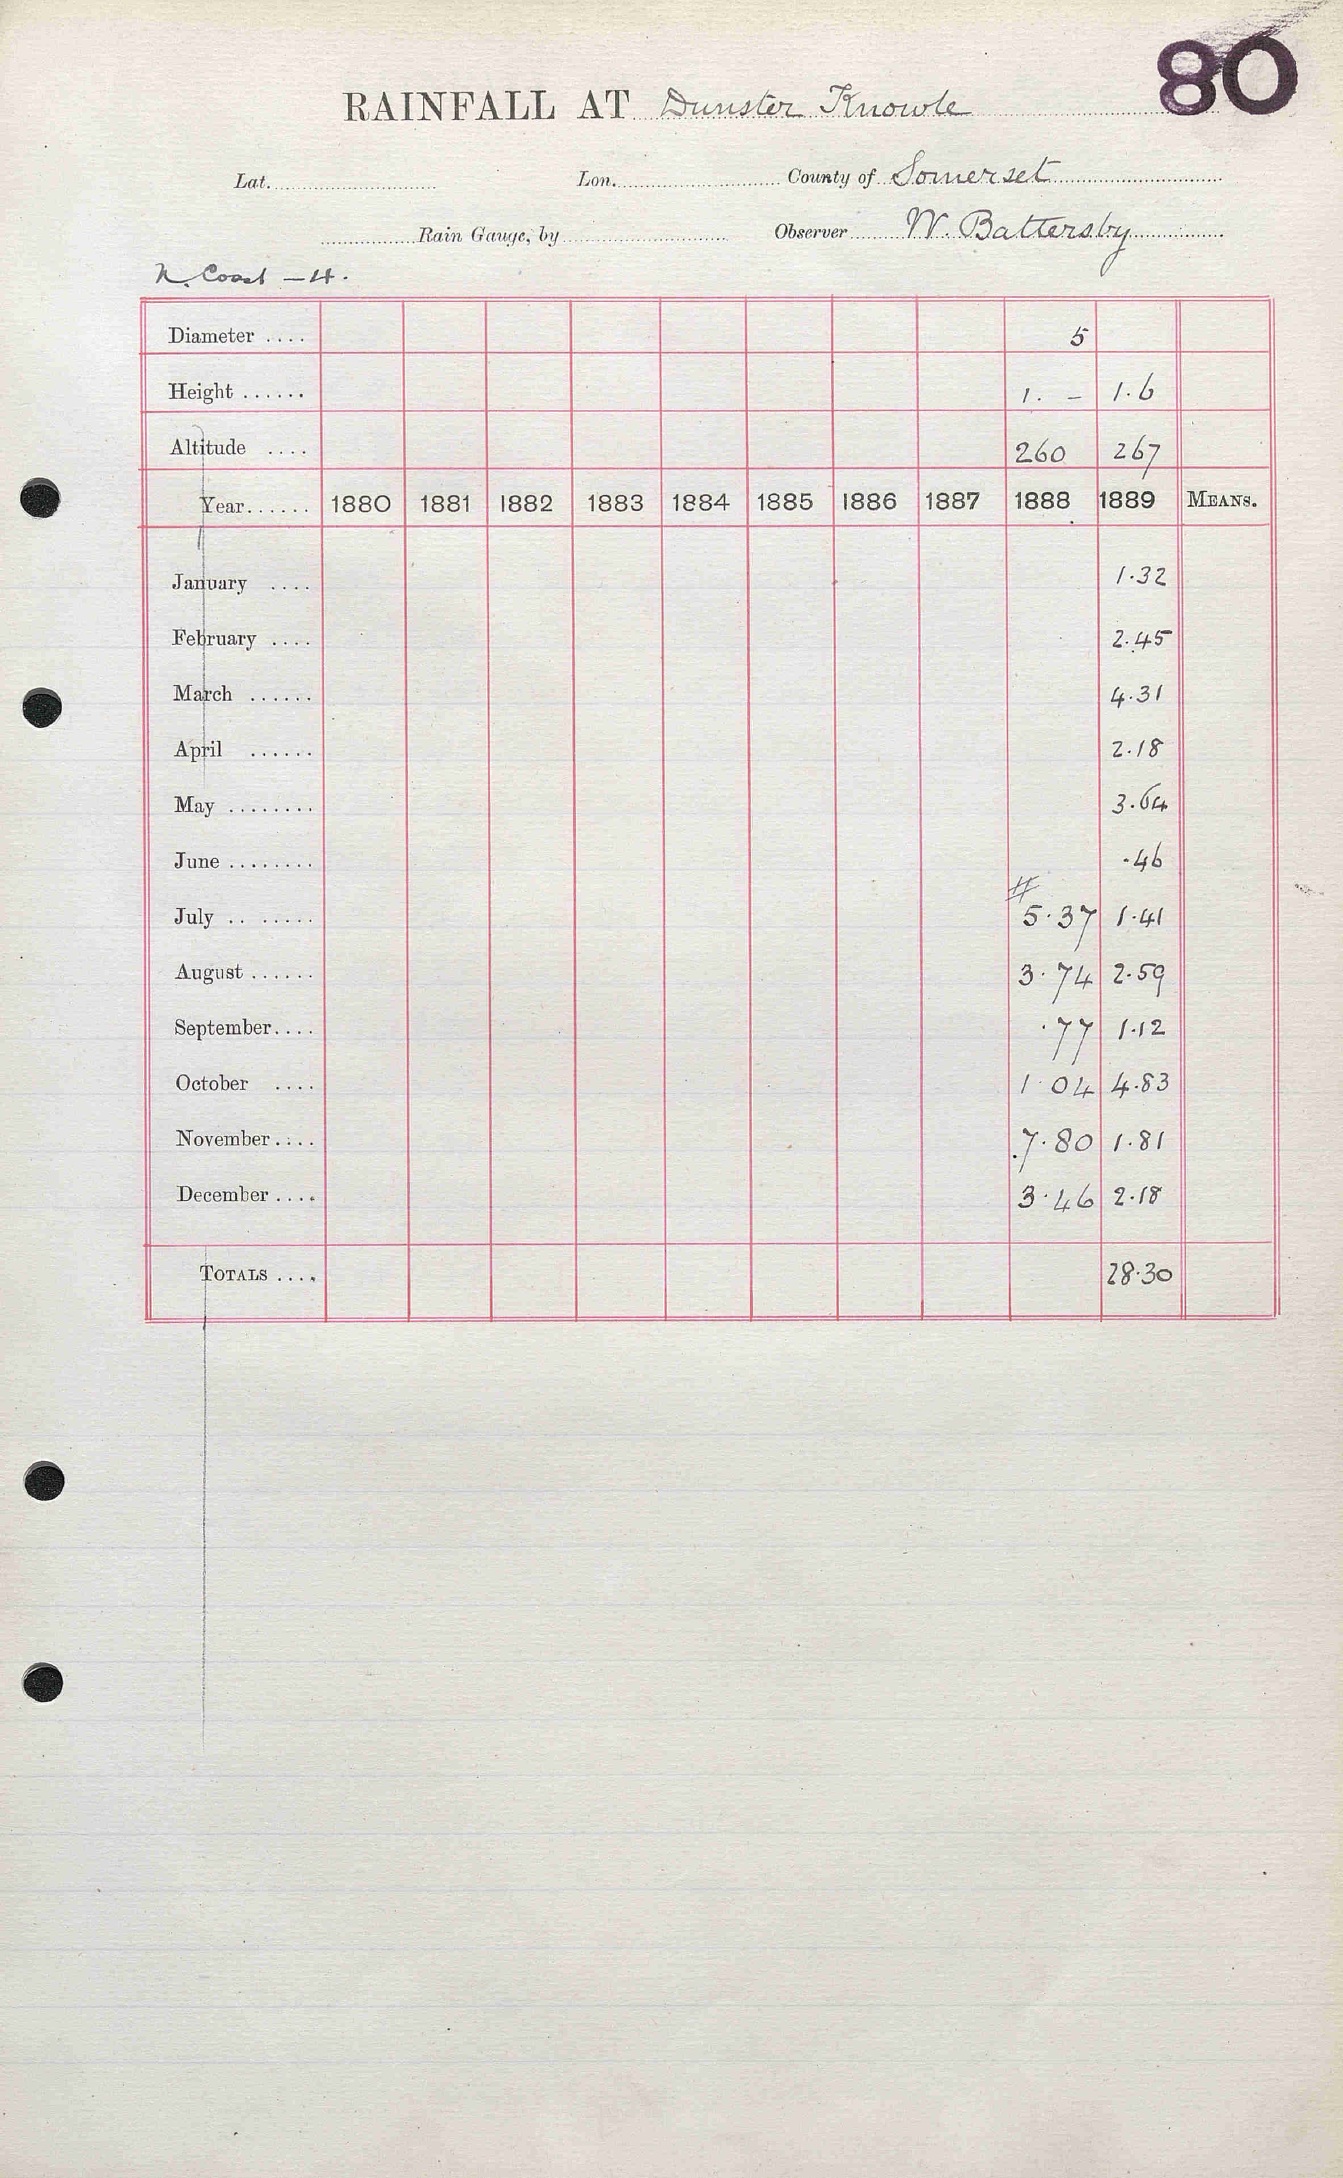 80
RAINFALL AT Dunster Knowle
Lat. Lon. County of Somerset
Rain Gauge, by Observer W. Battersby
N. Coast — 4.
Diameter .... 5
Height ...... 1. – 1.6
Altitude .... 260 267
Year...... 1880 1881 1882 1883 1884 1885 1886 1887 1888 1889 MEANS.
January .... 1.32
February .... 2.45
March ...... 4.31
April ...... 2.18
May ........ 3.64
June ........ .46
#
July .. ...... 5.37 1.41
August ...... 3.74 2.59
September.... .77 1.12
October .... 1.04 4.83
November.... 7.80 1.81
December .... 3.46 2.18
TOTALS .... 28.30